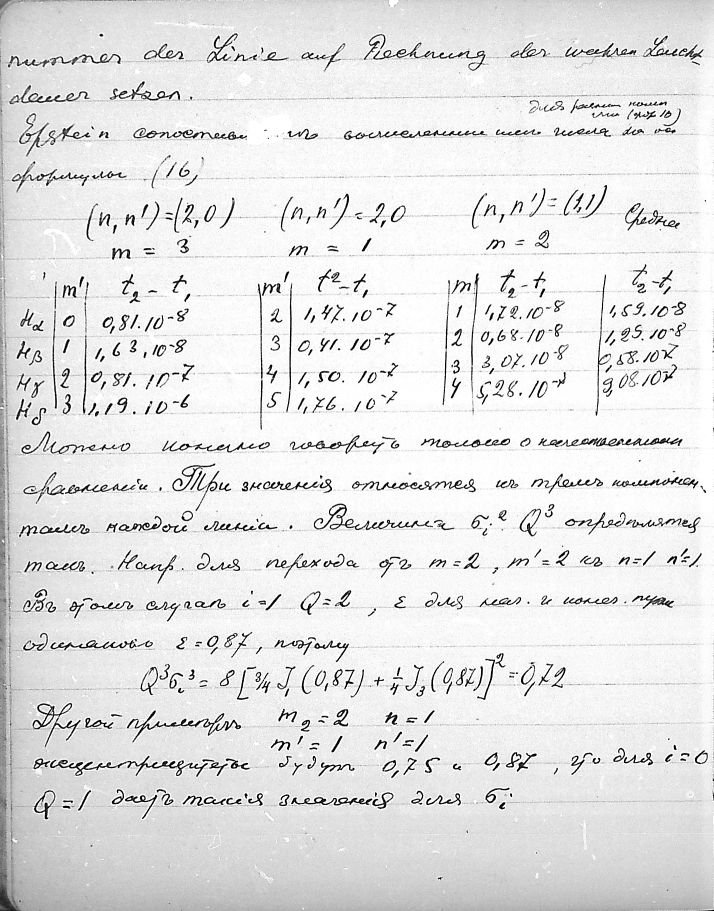 nummer der Linie auf Rechnung der wahren Leucht-
dauer setzen.
для разныхъ комп
(16)
Epstein сопоставл съ вычисленными числа по
формулы (16)
(n, n') = (2,0) (n, n') = 2,0 (n, n') = (1,1) Средне
m = 3 m = 1 m = 2
m' t₂ - t₁ m' t² - t₁ m t₂ - t₁ t₂ - t₁
Hα 0 0,81.10⁻⁸ 2 1,47.10⁻⁷ 1 1,72.10⁻⁸ 1,59.10⁻⁸
Hβ 1 1,63.10⁻⁸ 3 0,41.10⁻⁷ 2 0,68.10⁻⁸ 1,25.10⁻⁸
Hγ 2 0,81.10⁻⁷ 4 1,50.10⁻⁷ 3 3,07.10⁻⁸ 0,58.10⁻⁷
Hδ 3 1,19.10⁻⁶ 5 1,76.10⁻⁷ 4 5,28.10⁻⁸ 9,08.10⁻⁷
Можно конечно говорить только о качественномъ
сравненіи. Три значенія относятся къ тремъ компонен-
тамъ каждой линіи. Величина σᵢ² Q³ опредѣлятся
такъ. Напр. для перехода отъ m=2, m'=2 къ n=1 n'=1.
Въ этомъ случаѣ i=1 Q=2, ε для нач. и конеч.
одинаково ε=0,87, поэтому
Q³σᵢ³ = 8 [¾ J₁ (0,87) + ¼ J₃ (0,87)]² = 0,72
Другой примѣръ m₂=2 n=1
m'=1 n'=1
эксцентрицитеты будутъ 0,75 и 0,87, что для i=0
Q=1 даетъ такія значенія для σᵢ